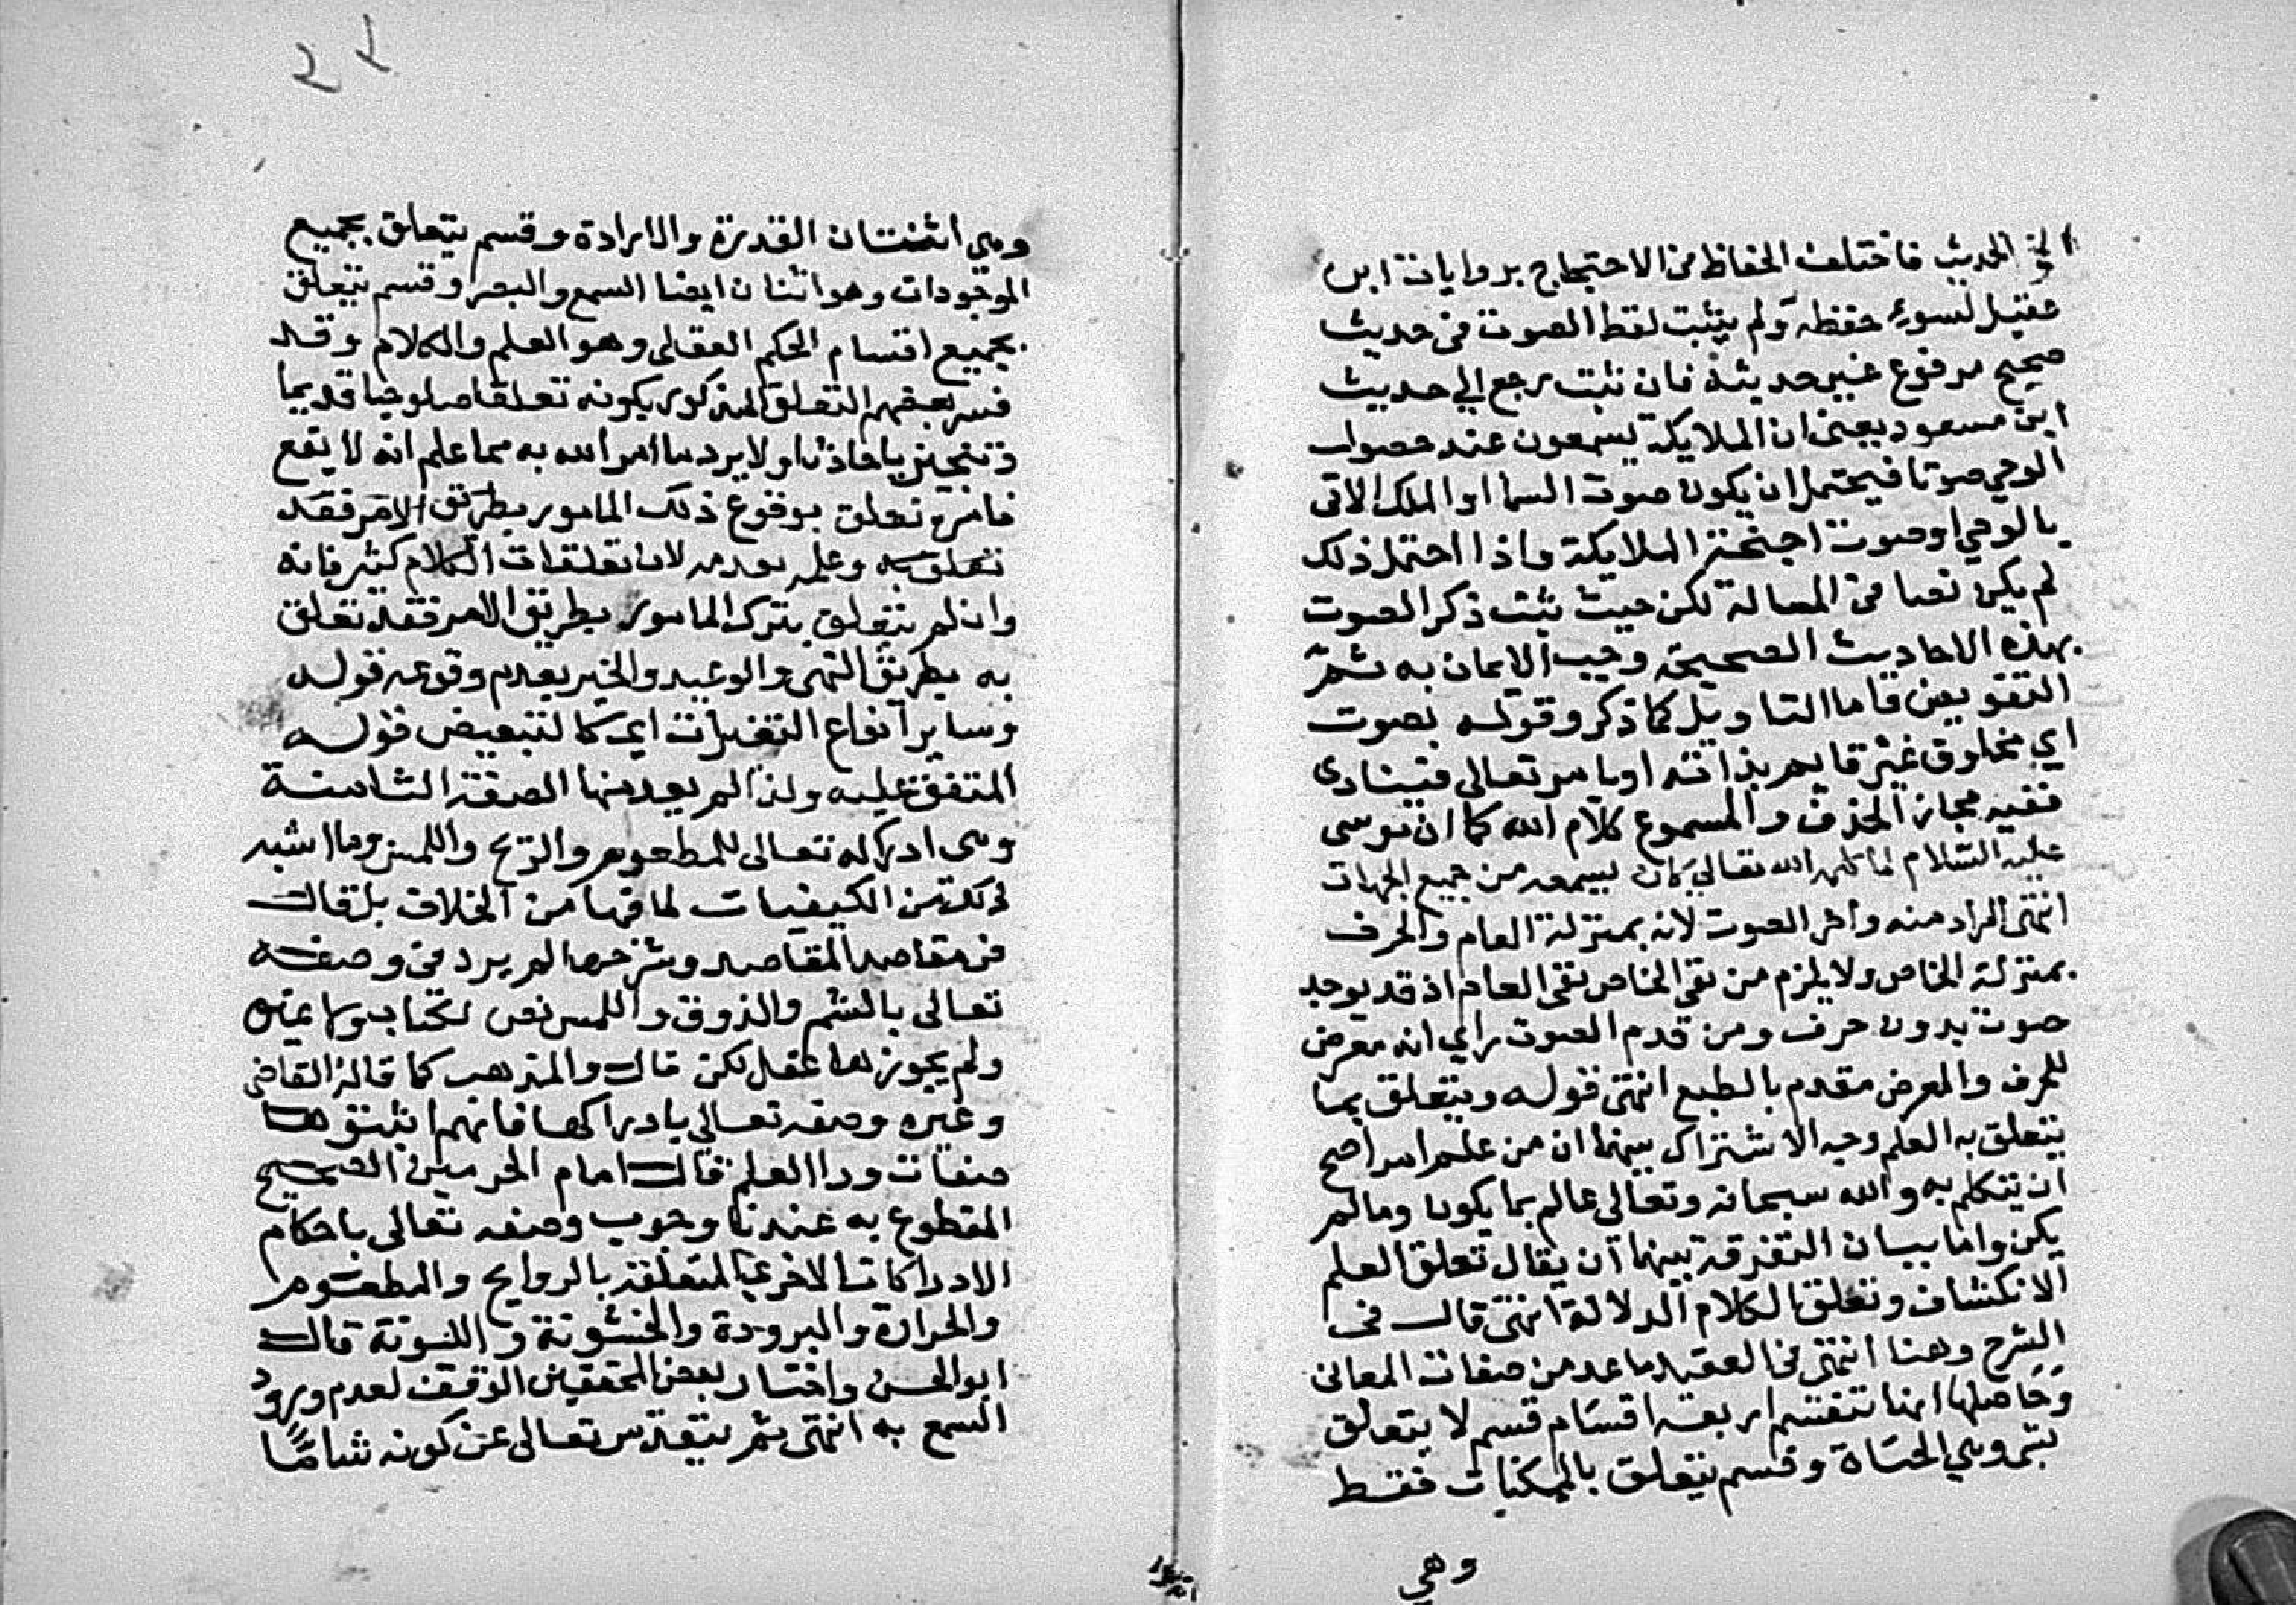 الحديث فاختلف الحفاظ في الاحتجاج بروايات ابن
عقيل لسوء حفظه ولم يثبت لفظ الصوت في حديث
صحيح مرفوع غير حديثه فان ثبت رجع الي حديث
ابن مسعود يعني ان الملايكة يسمعون عند حصول
الوحي صوتا فيحتمل ان يكون صوت السما او الملك الاتي
بالوحي او صوت اجنحة الملايكة واذا احتمل ذلك
لم يكن نصا في المسالة لكن حيث ثبت ذكر الصوت
بهذه الاحاديث الصحيحة وجب الايمان به ثم
التفويض واما التاويل كما ذكر وقوله بصوت
اي مخلوق غير قايم بذاته او يامر تعالي فينادي
ففيه مجاز الحذف والمسموع كلام الله كما ان موسى
عليه السلام لما كلمه الله تعالي كان يسمعه من جميع الجهات
انتهى المراد منه واخر الصوت لانه بمنزلة العام والحرف
بمنزلة الخاص ولا يلزم من نفي الخاص نفي العام اذ قد يوجد
صوت بدون حرف ومن قدم الصوت راي انه معرض
للحرف والمعرض مقدم بالطبع انتهى قوله ويتعلق بما
يتعلق به العلم وجه الاشتراك بينهما ان من علم امرا صح
ان يتكلم به والله سبحانه وتعالى عالم بما يكون ومالم
يكن واما بيان التفرقة بينهما ان يقال تعلق العلم
الانكشاف وتعلق الكلام الدلالة انتهى قال في
الشرح وهنا انتهى في العقيدة ما عد من صفات المعاني
وحاصلها انها تنقسم اربعة اقسام قسم لا يتعلق
وهي الحياة وقسم يتعلق بالممكنات فقط
وهي
٢٢
وهي اثنتان القدرة والارادة وقسم يتعلق بجميع
الموجودات وهو اثنان ايضا السمع والبصر وقسم يتعلق
بجميع اقسام الحكم العقلى وهو العلم والكلام وقد
فسر بعضهم التعلق المذكور بكونه تعلقا صلوحيا قديما
وتنجيزيا حادثا ولا يرد ما امر الله به مما علم انه لا يقع
فامره تعلق بوقوع ذلك المامور بطريق الامر فقد
تعلق به وعلم بعدمه لان تعلقات الكلام كثير فانه
وان لم يتعلق بترك المامور بطريق الامر فقد تعلق
به بطريق النهي والوعيد والخبر بعدم وقوعه قوله
وساير انواع التغيرات اي كالتبعيض قوله
المتفق عليه ولذا لم يعد منها الصفة الثامنة
وهى ادراكه تعالى للمطعوم والريح واللمس وما اشبه
ذلك من الكيفيات لما فيها من الخلاف بل قال
في مقاصد المقاصد وشرحها لم يرد في وصفه
تعالى بالشم والذوق واللمس نص لكتاب ولا غيره
ولم يجوزها عقل لكن قال والمذهب كما قاله القاضي
وغيره وصفه تعالى بادراكها فانهم اثبتوها
صفات ورا العلم قال امام الحرمين الصحيح
المقطوع به عندنا وجوب وصفه تعالى باحكام
الادراكات الاخرى المتعلقة بالروايح والمطعوم
والحرارة والبرودة والخشونة و اللنونة قال
ابو الحسن واختار بعض المحققين الوقف لعدم ورود
السمع به انتهى ثم يتقدس تعالى عن كونه شامًّا